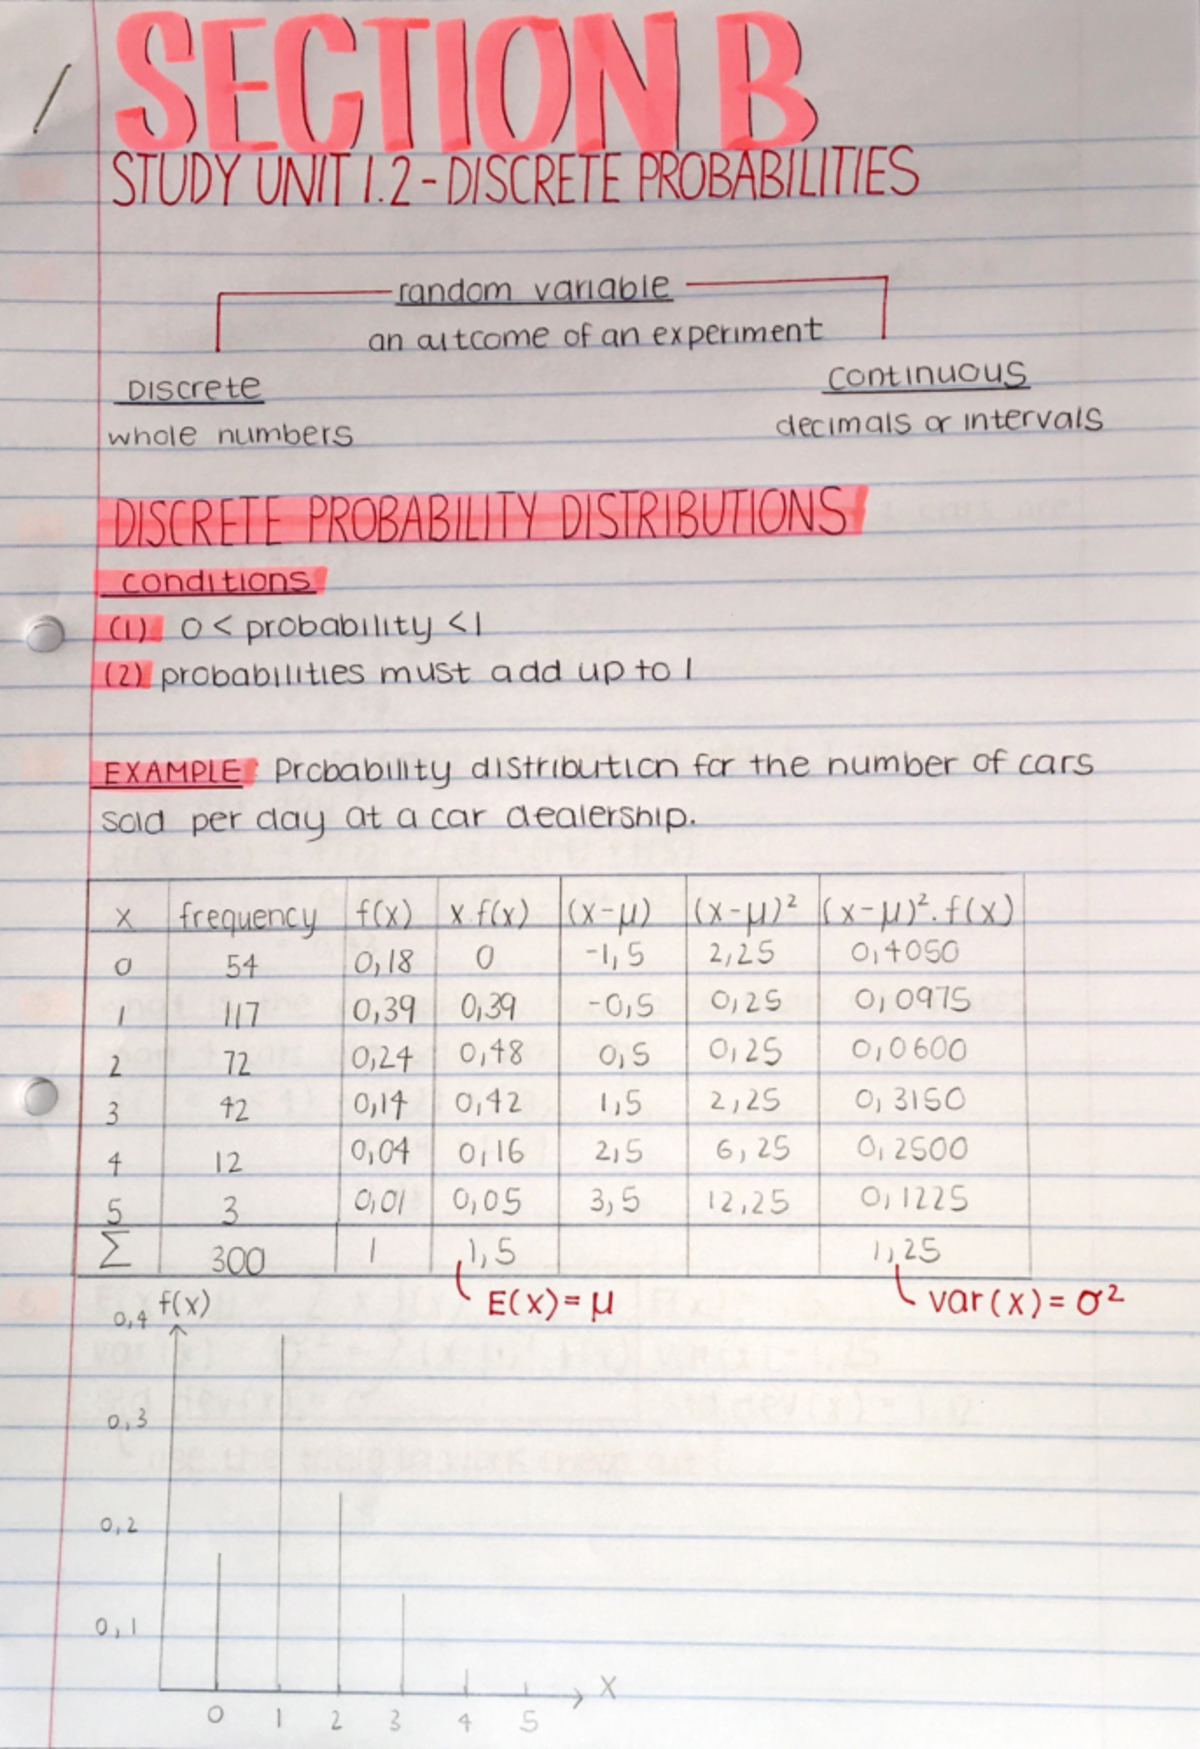 SECTION B
STUDY UNIT 1.2 - DISCRETE PROBABILITIES
random variable
an outcome of an experiment
Discrete
continuous
whole numbers
decimals or intervals
DISCRETE PROBABILITY DISTRIBUTIONS
conditions
(1) 0 < probability < 1
(2) probabilities must add up to 1
EXAMPLE: Probability distribution for the number of cars
sold per day at a car dealership.
x frequency f(x) x.f(x) (x-μ) (x-μ)² (x-μ)².f(x)
0 54 0,18 0 -1,5 2,25 0,4050
1 117 0,39 0,39 -0,5 0,25 0,0975
2 72 0,24 0,48 0,5 0,25 0,0600
3 42 0,14 0,42 1,5 2,25 0,3150
4 12 0,04 0,16 2,5 6,25 0,2500
5 3 0,01 0,05 3,5 12,25 0,1225
Σ 300 1 1,5 1,25
E(x) = μ var(x) = σ²
0,4 f(x)
0,3
0,2
0,1
x
0 1 2 3 4 5